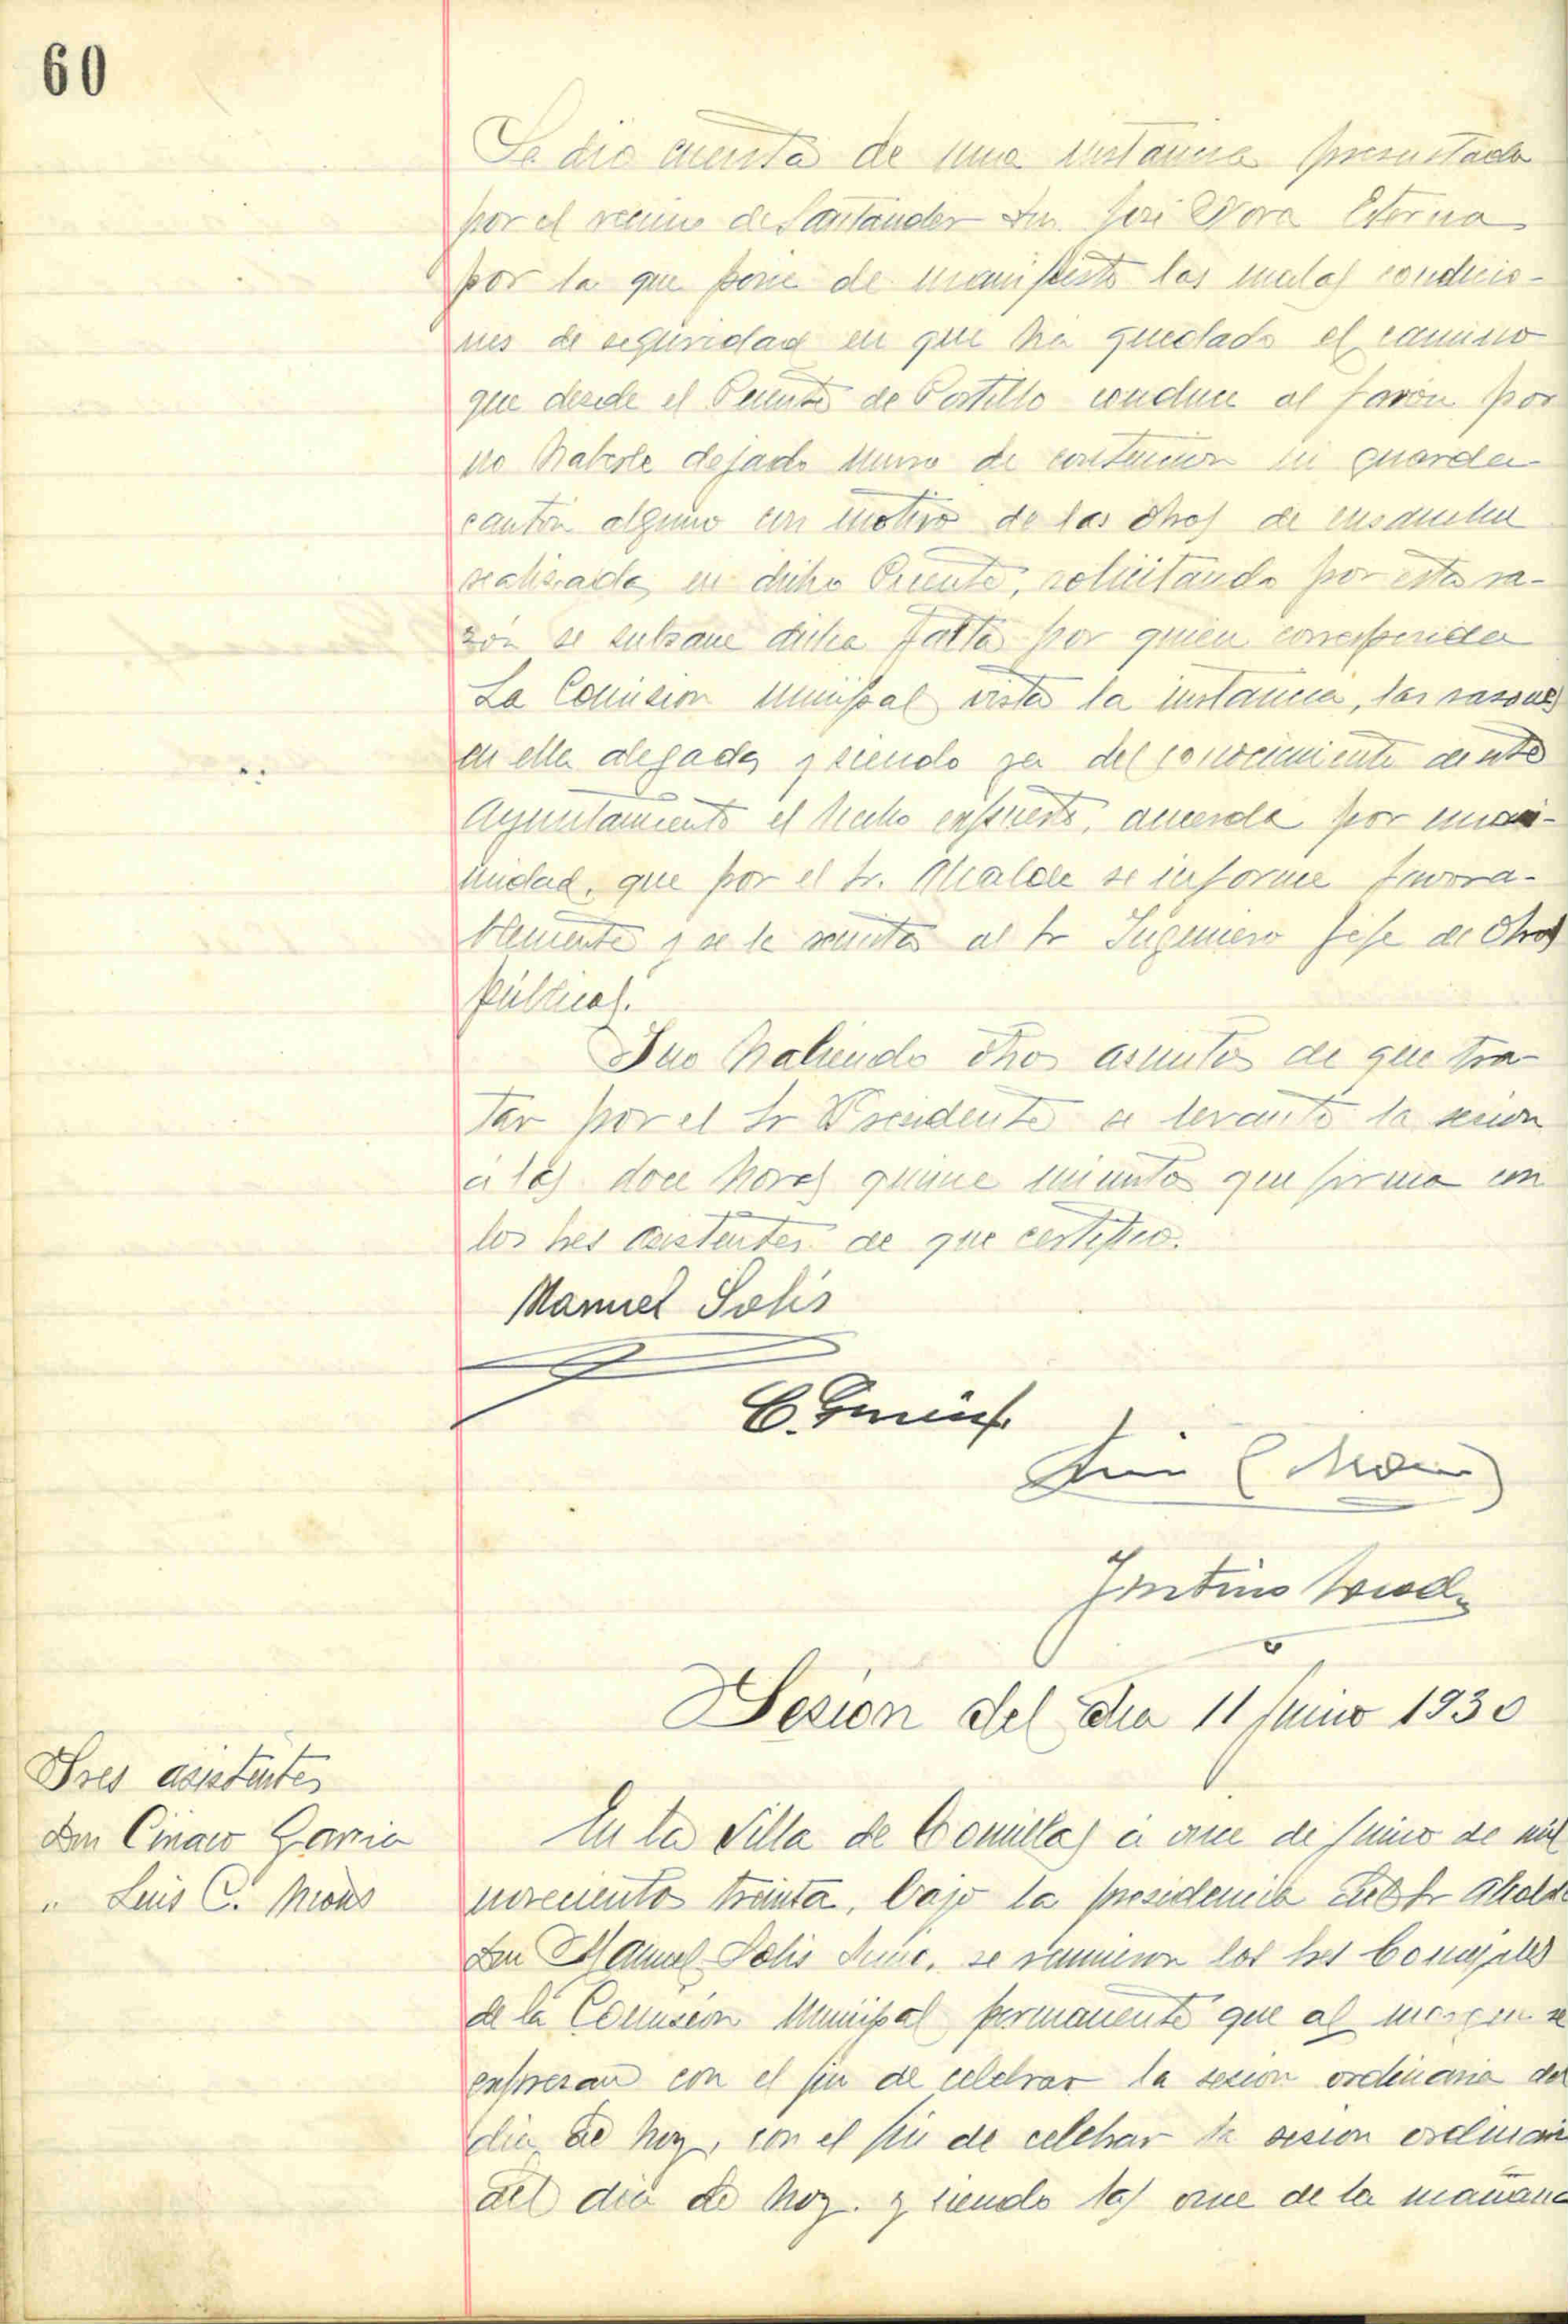 60
Se dió cuenta de una instancia presentada
por el vecino de Santander Dn. José Mora
por la que pone de manifiesto las malas condicio-
nes de seguridad en que ha quedado el camino
que desde el Puente de Portillo conduce al por
no haberle dejado muro de contencion ni guarda
cantón alguno con motivo de las obras de ensanche
realizadas en dicho Puente, solicitando por esta ra-
zón se subsane dicha falta por quien corresponda
La Comision Municipal vista la instancia, las razones
en ella alegadas y siendo ya del conocimiento de este
Ayuntamiento el hecho expuesto, acuerda por unani-
midad, que por el Sr. Alcalde se informe favora-
blemente y se le remita al Sr Ingeniero Jefe de Obras
públicas.
Y no habiendo otros asuntos de que tra-
tar por el Sr Presidente se levantó la sesion
á las doce horas quince minutos que firma con
los Sres asistentes de que certifico.
Manuel Solís
C.
Luis C
Sesion del dia 11 Junio 1930
Sres asistentes
Don Garcia
" Luis C.
En la Villa de Comillas á once de Junio de mil
novecientos treinta, bajo la presidencia del Sr Alcalde
Don Manuel Solis se reunieron los Sres Concejales
de la Comisión Municipal permanente que al margen se
expresan con el fin de celebrar la sesion ordinaria del
dia de hoy, con el fin de celebrar la sesion ordinaria
del dia de hoy. y siendo las once de la mañana